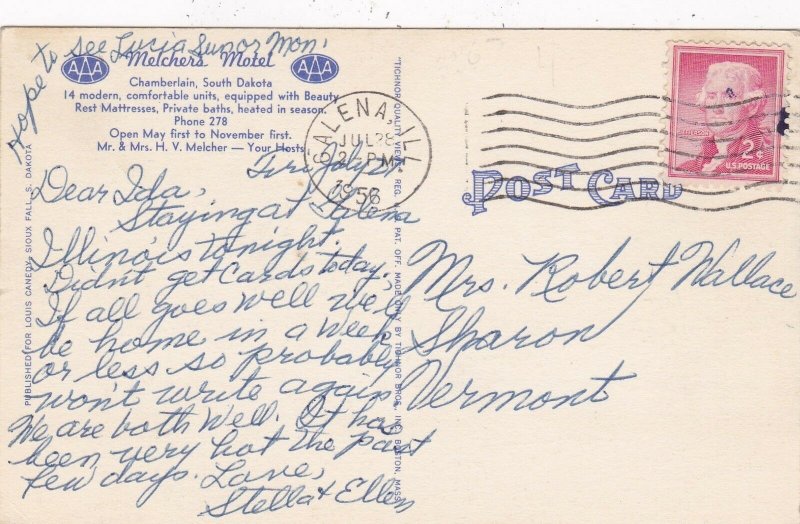 Hope to see Lucia Sun or Mon.
AAA Melchers Motel AAA
Chamberlain, South Dakota
14 modern, comfortable units, equipped with Beauty
Rest Mattresses, Private baths, heated in season.
Phone 278
Open May first to November first.
Mr. & Mrs. H. V. Melcher — Your Hosts
Fri July 27
Dear Ida,
Staying at Galena
Illinois tonight.
Didn't get cards today,
If all goes well we'll
be home in a week
or less so probably
won't write again
We are both well. It has
been very hot the past
few days. Love,
Stella & Ellen
PUBLISHED FOR LOUIS CANEDY, SIOUX FALLS, S. DAKOTA
"TICHNOR QUALITY VIEWS," REG. U. S. PAT. OFF. MADE ONLY BY TICHNOR BROS., INC., BOSTON, MASS.
GALENA, ILL.
JUL 28
2 PM
1956
JEFFERSON
2¢
U.S. POSTAGE
POST CARD
Mrs. Robert Wallace
Sharon
Vermont